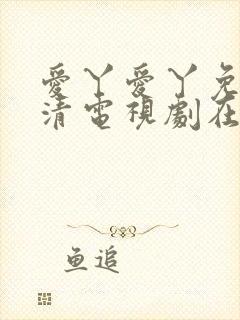 愛丫愛丫免
清電視劇在
鱼追